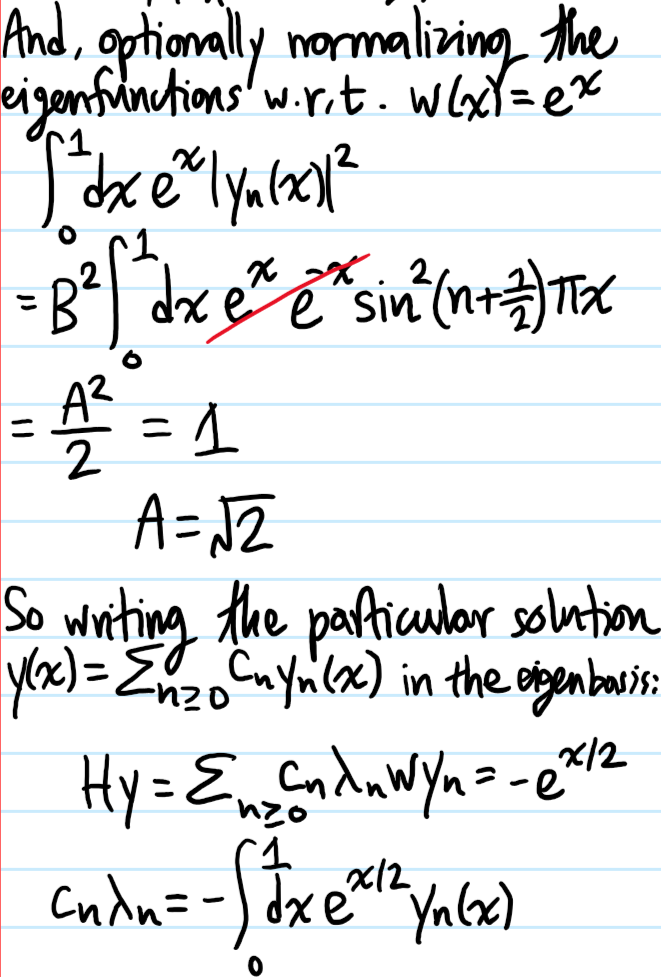 And, optionally normalizing the
eigenfunctions w.r.t. w(x)=e^x
∫_0^1 dx e^x |y_n(x)|^2
= B^2 ∫_0^1 dx e^x e^{-x} sin^2(n+1/2)πx
= A^2/2 = 1
A = √2
So writing the particular solution
y(x) = Σ_{n≥0} c_n y_n(x) in the eigenbasis:
Hy = Σ_{n≥0} c_n λ_n w y_n = -e^{x/2}
c_n λ_n = -∫_0^1 dx e^{x/2} y_n(x)